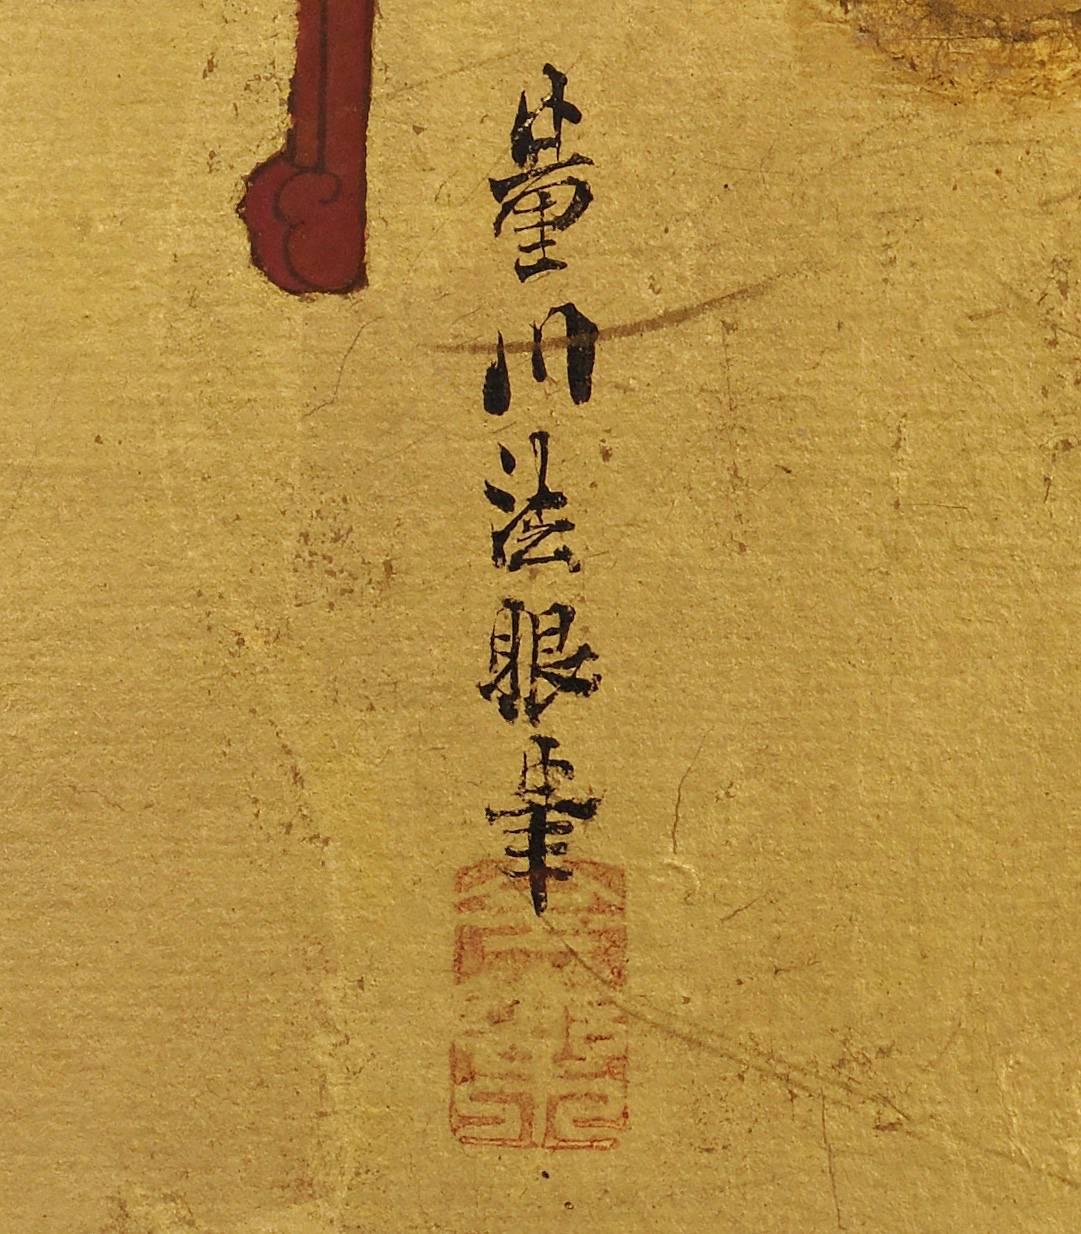 董川法眼筆